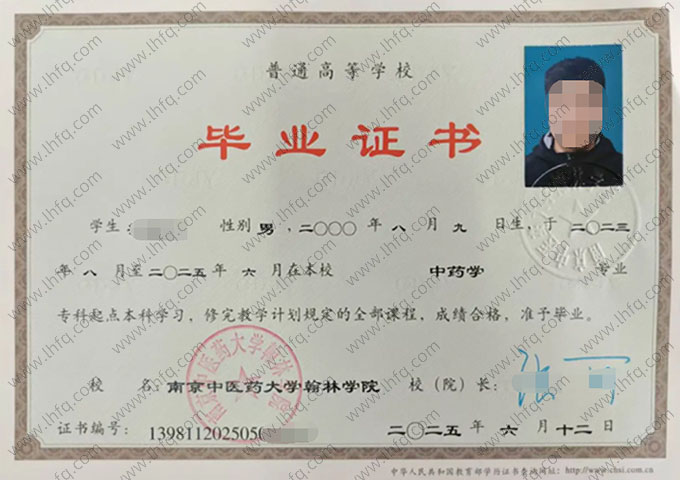 普通高等学校
毕业证书
学生: 性别 男 ,二〇〇〇 年 八 月 九 日生,于 二〇二三
年 八 月至二〇二五年 六 月在本校 中药学 专业
专科起点本科学习,修完教学计划规定的全部课程,成绩合格,准予毕业。
校 名:南京中医药大学翰林学院 校(院)长:
证书编号: 13981120250
二〇二五 年 六 月 十二 日
中华人民共和国教育部学历证书查询网址: http://www.chsi.com.cn
www.lhfq.com
南京中医药大学翰林学院